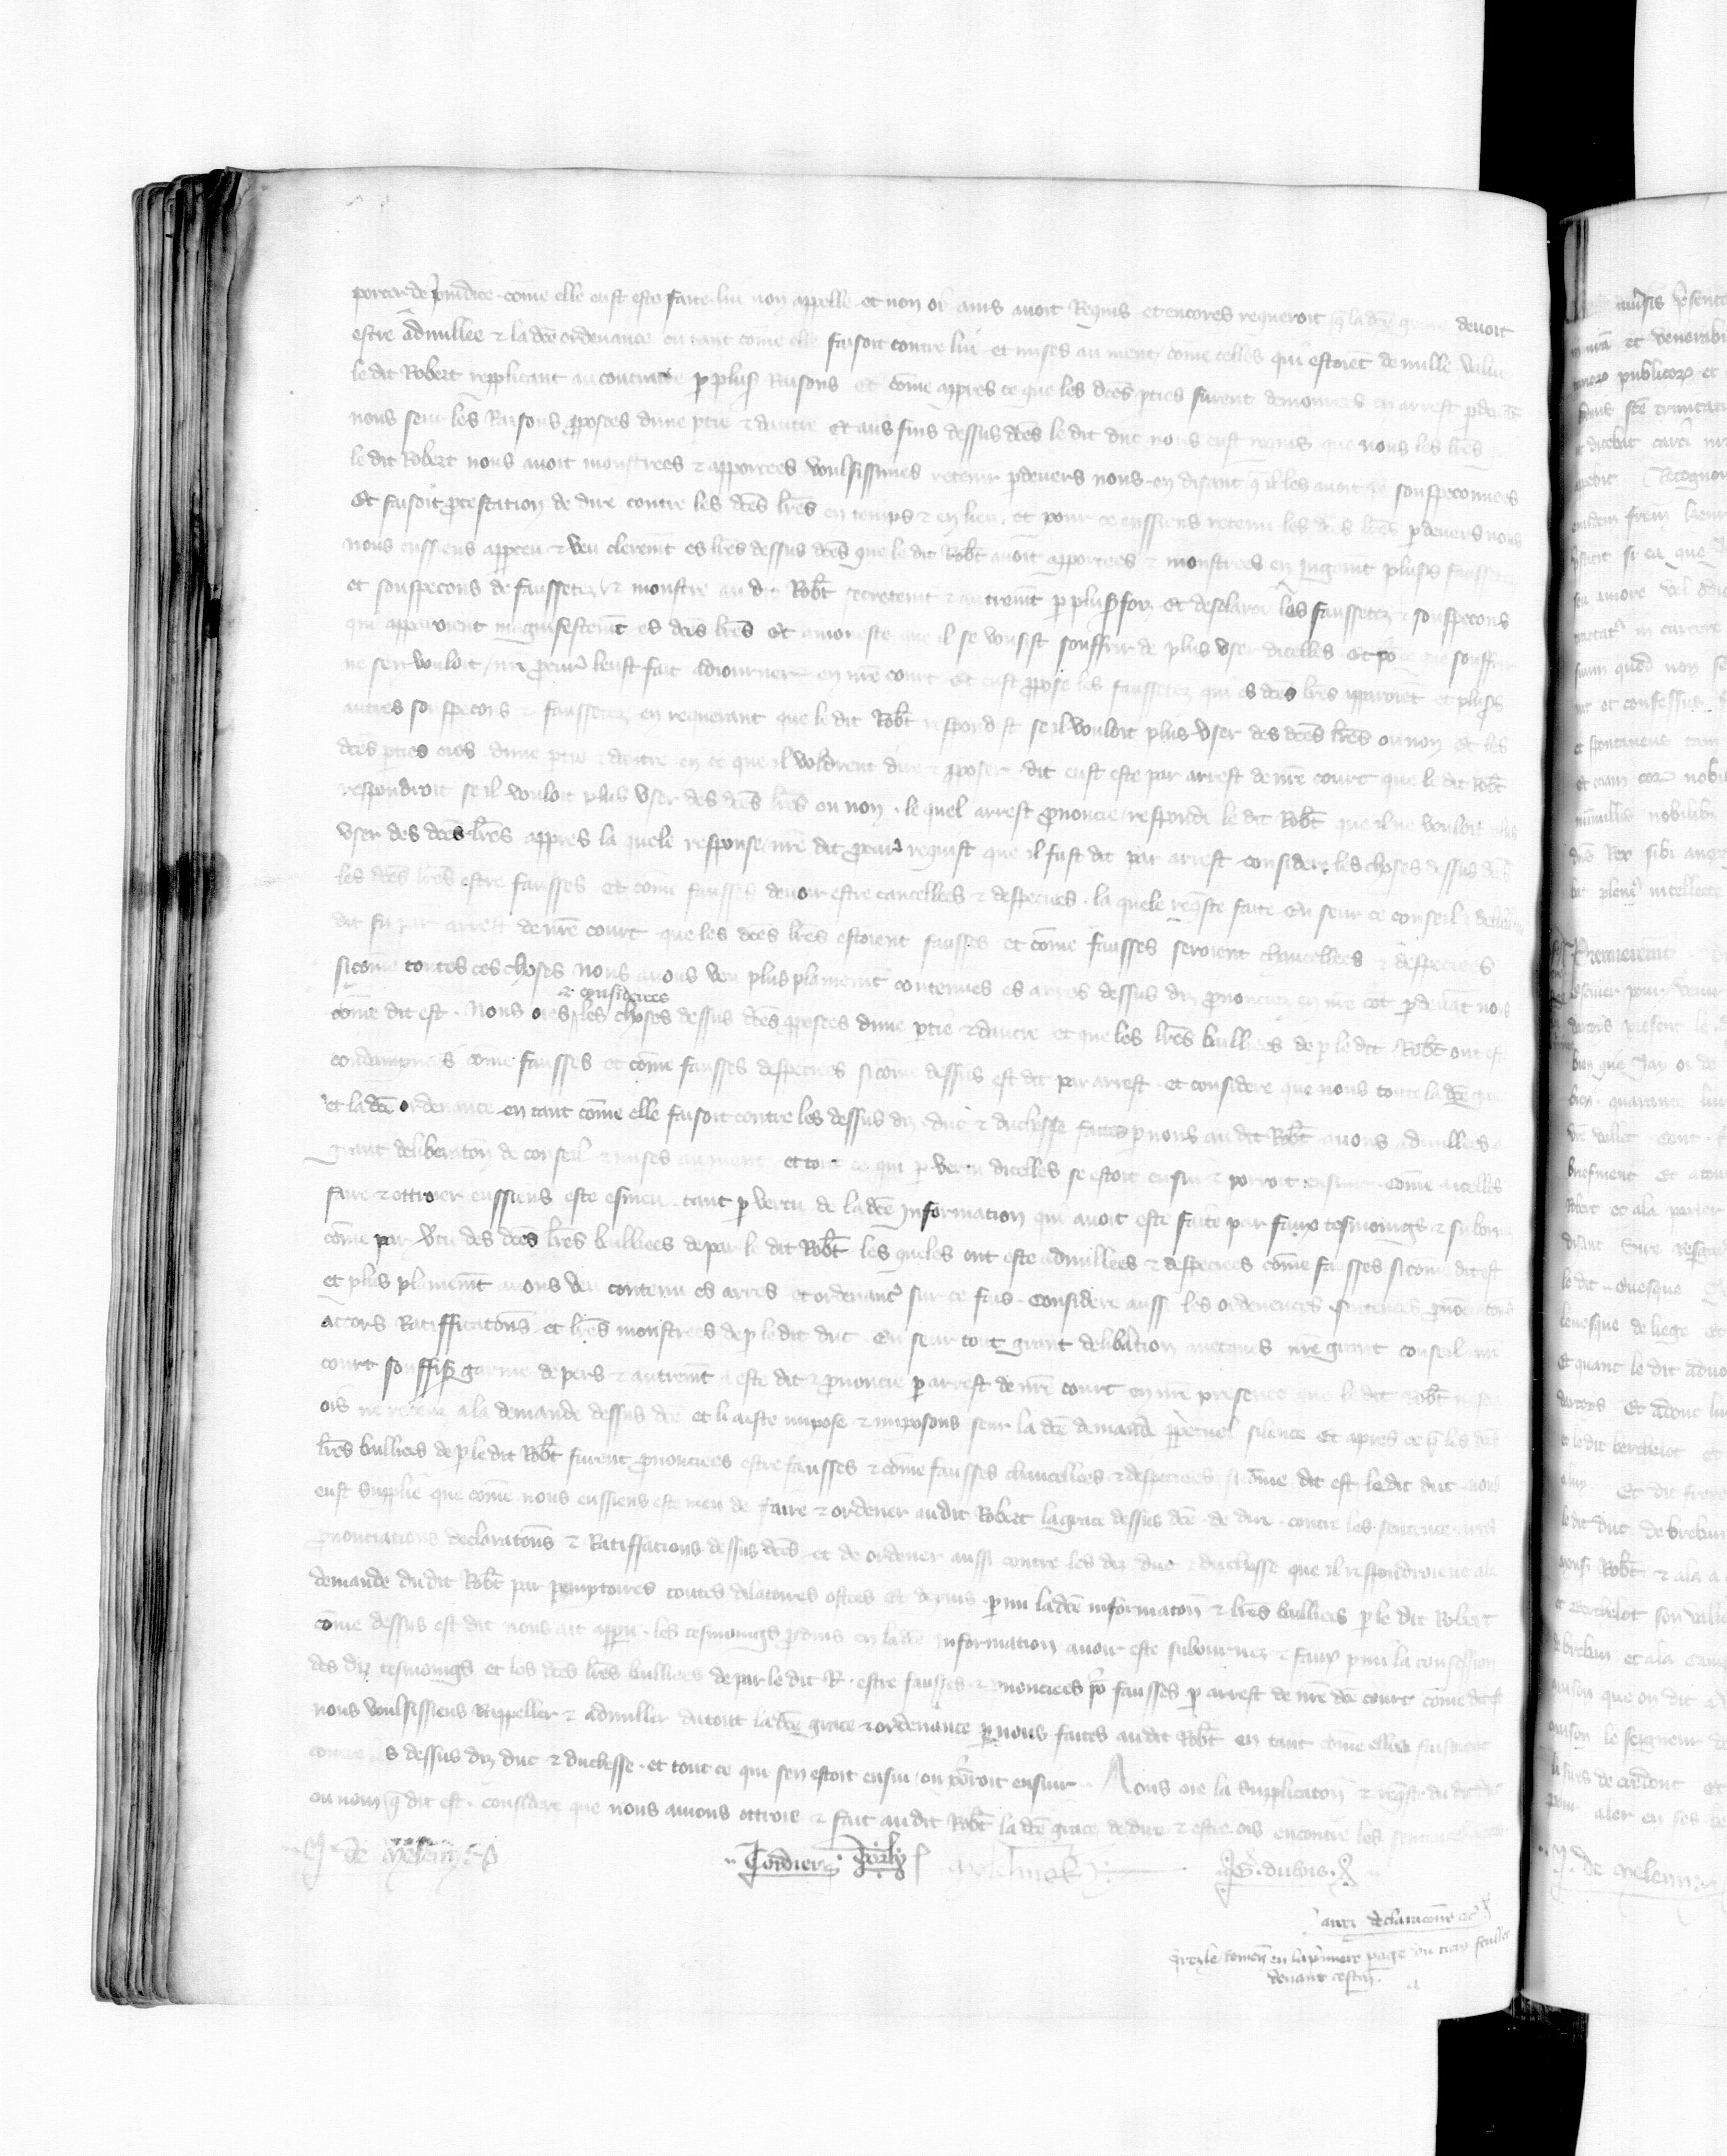 porter de p̃iudice come elle eust este faite lui non appelle et non oi ains avoit Requis et encores requeroit q̃ la dc̃e grace devoit
estre adnullee & la dc̃e ordenance en tant com̃e elle faisoit contre lui et mises au nient com̃e celles qui estoiẽt de nulle value
le dit Robert repplicant au contraire p̱ plus̃ Raisons et com̃e appres ce que les dc̃es p̱ties furent demourees en arrest p̱devãt
nous seur les Raisons p̱posees dune p̱tie & dautre Et aus fins dessus dc̃es le dit duc nous eust requis que nous les lr̃es que
le dit Robert nous avoit monstrees & apportees voulsissiens retenir p̱devers nous en disant q̃ il les avoit souspeconnees
Et faisoit p̱testation de dire contre les dc̃es lr̃es en temps & en lieu et pour ce eussiens retenu les dc̃es lr̃es p̱devers nous
nous eussiens apperceu & veu cleremt̃ es lr̃es dessus dc̃es que le dit Rob̃t avoit apportees & monstrees en Jugemt̃ plus̃s faussetez
et souspecons de faussetez & monstre au dit Rob̃t secretemt̃ & autremt̃ p̱ plus̃ foiz Et desclairie les faussetez & souspecons
qui apparoient magnifestemt̃ es dc̃es lr̃es Et amoneste que il se vousist souffrir de plus user dicelles Et po² ce que souffrir
ne sen vouloit nr̃e p̱cur² leust fait adiourner en nr̃e court et eust p̱pose les faussetez qui es dc̃es lr̃es apparoiẽt et plus̃s
autres souspecons & faussetez en requerant que le dit Rob̃t respondist se il vouloit plus user des dc̃es lr̃es ou non Et les
dc̃es p̱ties oies dune p̱tie & dautre en ce que il voldrent dire & p̱poser dit eust este par arrest de nr̃e court que le dit Rob̃t
respondroit se il vouloit plus user des dc̃es lr̃es ou non le quel arrest p̱noncie respondi le dit Rob̃t que il ne vouloit plus
user des dc̃es lr̃es appres la quele response nr̃e dit p̱cur² requist que il fust dit par arrest considere les choses dessus dc̃es
les dc̃es lr̃es estre fausses et com̃e fausses devoir estre cancellees & despeciees la quele req̃ste faite Eu seur ce conseil &
dit fu par arrest de nr̃e court que les dc̃es lr̃es estoient fausses et com̃e fausses seroient chancellees & despeciees
sicom̃e toutes ces choses nous avons veu plus plainemt̃ contenues es arres dessus diz p̱noncez en nr̃e cõt p̱devãt nous
& considerees
com̃e dit est Nous oies les choses dessus dc̃es p̱posees dune p̱tie & dautre et que les lr̃es bailliees de p̱ le dit Rob̃t ont este
condampnees com̃e fausses et com̃e fausses despeciees sicom̃e dessus est dit par arrest et considere que nous toute la dc̃e grace
et la dc̃e ordenance en tant com̃e elle faisoit contre les dessus diz duc & duchesse faites p̱ nous au dit Rob̃t avons adnullees a
grant deliberatõn de conseil & mises au nient et tout ce qui p̱ vertu dicelles se estoit ensui & porroit ensuir com̃e aicelles
faire & ottroier eussiens este esmeu tant p̱ vertu de la dc̃e Information qui avoit este faite par faux tesmoings & subornez
com̃e par v̓tu des dc̃es lr̃es bailliees de par le dit Rob̃t les queles ont este adnullees & despeciees com̃e fausses sicom̃e dit est
et plus plainemt̃ avons veu contenu es arres et ordenanc² sur ce fais Considere aussi les ordenences sentences p̱nonciatõns
accors Ratifficatõns et lr̃es monstrees de p̱ le dit duc Eu seur tout grant delib̓ation avecques nr̃e grant conseil nr̃e
court souffis̃ garnie de pers & autremt̃ a este dit & p̱noncie p̱ arrest de nr̃e court en nr̃e presence que le dit Rob̃t ne sera
ois ne receuz a la demande dessus dc̃e et li a este impose & imposons seur la dc̃e demande p̱petuel silence Et apres ce q̃ les dc̃es
lr̃es bailliees de p̱ le dit Rob̃t furent p̱noncies estre fausses & com̃e fausses chancellees & despeciees sicom̃e dit est le dit duc nous
eust supplie que com̃e nous eussiens este meu de faire & ordener audit Robert la grace dessus dc̃e de dire contre les sentence arres
p̱nonciations declaratõns & Ratiffications dessus dc̃es et de ordener aussi contre les diz duc & duchesse que il respondroient ala
demande dudit Rob̃t par p̱emptoires toutes dilatoires ostees Et depuis p̱ mi la dc̃e informatõn & lr̃es bailliees p̱ le dit Robert
com̃e dessus est dit nous ait apparu les tesmoings p̱duis en la dc̃e Information avoir este subournez & faux p̱ mi la confession
des diz tesmoings et les dc̃es lr̃es bailliees de par le dit R. estre fausses & p̱noncees po² fausses p̱ arrest de nr̃e dc̃e court com̃e dit est
nous voulsissiens Rappeller & adnuller du tout la dc̃e grace & ordenance p̱ nous faites audit Rob̃t en tant com̃e elles faisoient
contre les dessus diz duc & duchesse et tout ce qui sen estoit ensui ou porroit ensuir Nous oie la supplicatõn & req̃ste du dit duc
ou nom q̃ dit est considere que nous avions ottroie & fait audit Rob̃t la dc̃e grace de dire & estre ois encontre les sentence
J. de Meleun Cordier G. dubois
declaracions
en la p̃miere page du tiers feullet
devant cestui